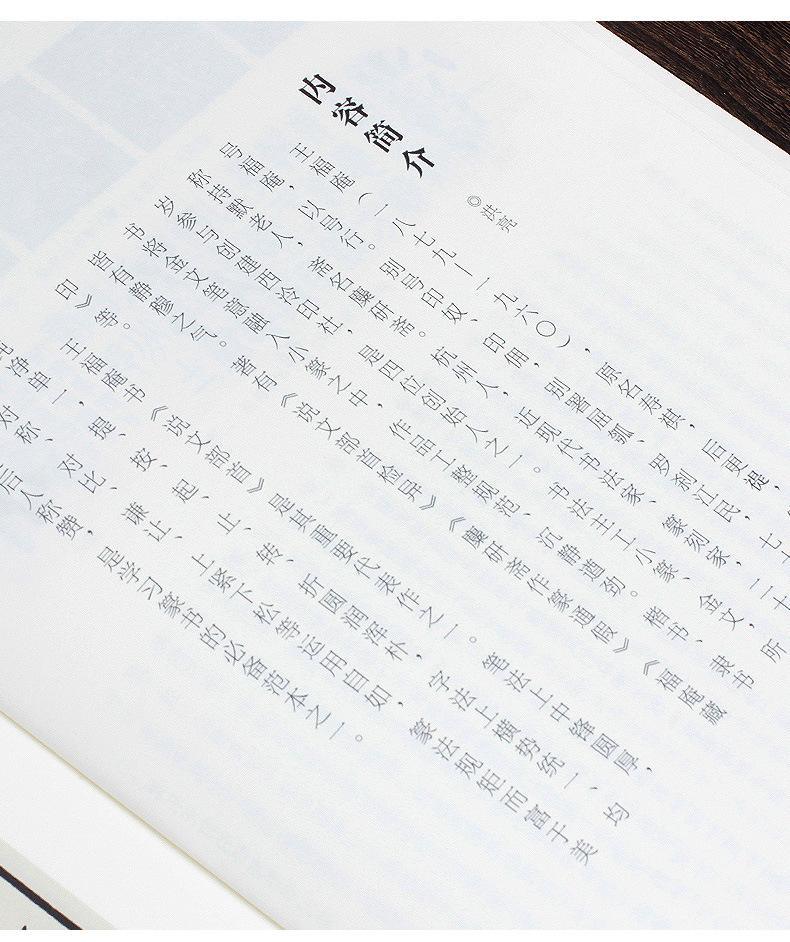 内容简介
◎洪亮
王福庵（一八七九—一九六〇），原名寿祺，后更禔，
号福庵，以号行。别号印奴、印佣，别署屈瓠、罗刹江民，七十
称持默老人，斋名麋研斋。杭州人，近现代书法家、篆刻家，二十
岁参与创建西泠印社，是四位创始人之一。书法主工小篆、金文，所
书将金文笔意融入小篆之中，作品工整规范，沉静遒劲。楷书、隶书
皆有静穆之气。著有《说文部首检异》《麋研斋作篆通假》《福庵藏
印》等。
王福庵书《说文部首》是其重要代表作之一。笔法上中锋圆厚，
纯净单一，提、按、起、止、转、折圆润浑朴，字法上横势统一、均
对称、对比、谦让、上紧下松等运用自如，篆法规矩而富于美
后人称赞，是学习篆书的必备范本之一。